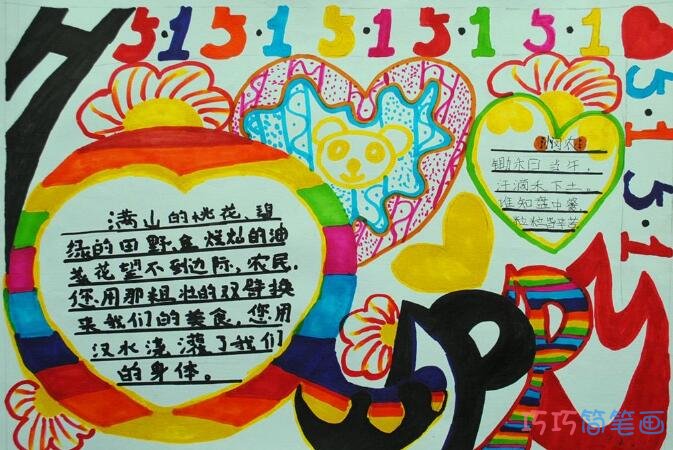 5·1 5·1 5·1 5·1 5·1
5·1 5·1
悯农
锄禾日当午，
汗滴禾下土。
谁知盘中餐
粒粒皆辛苦
满山的桃花、碧
绿的田野金灿灿的油
菜花望不到边际，农民，
您用那粗壮的双臂换
来我们的美食，您用
汉水浇灌了我们
的身体。
巧巧简笔画